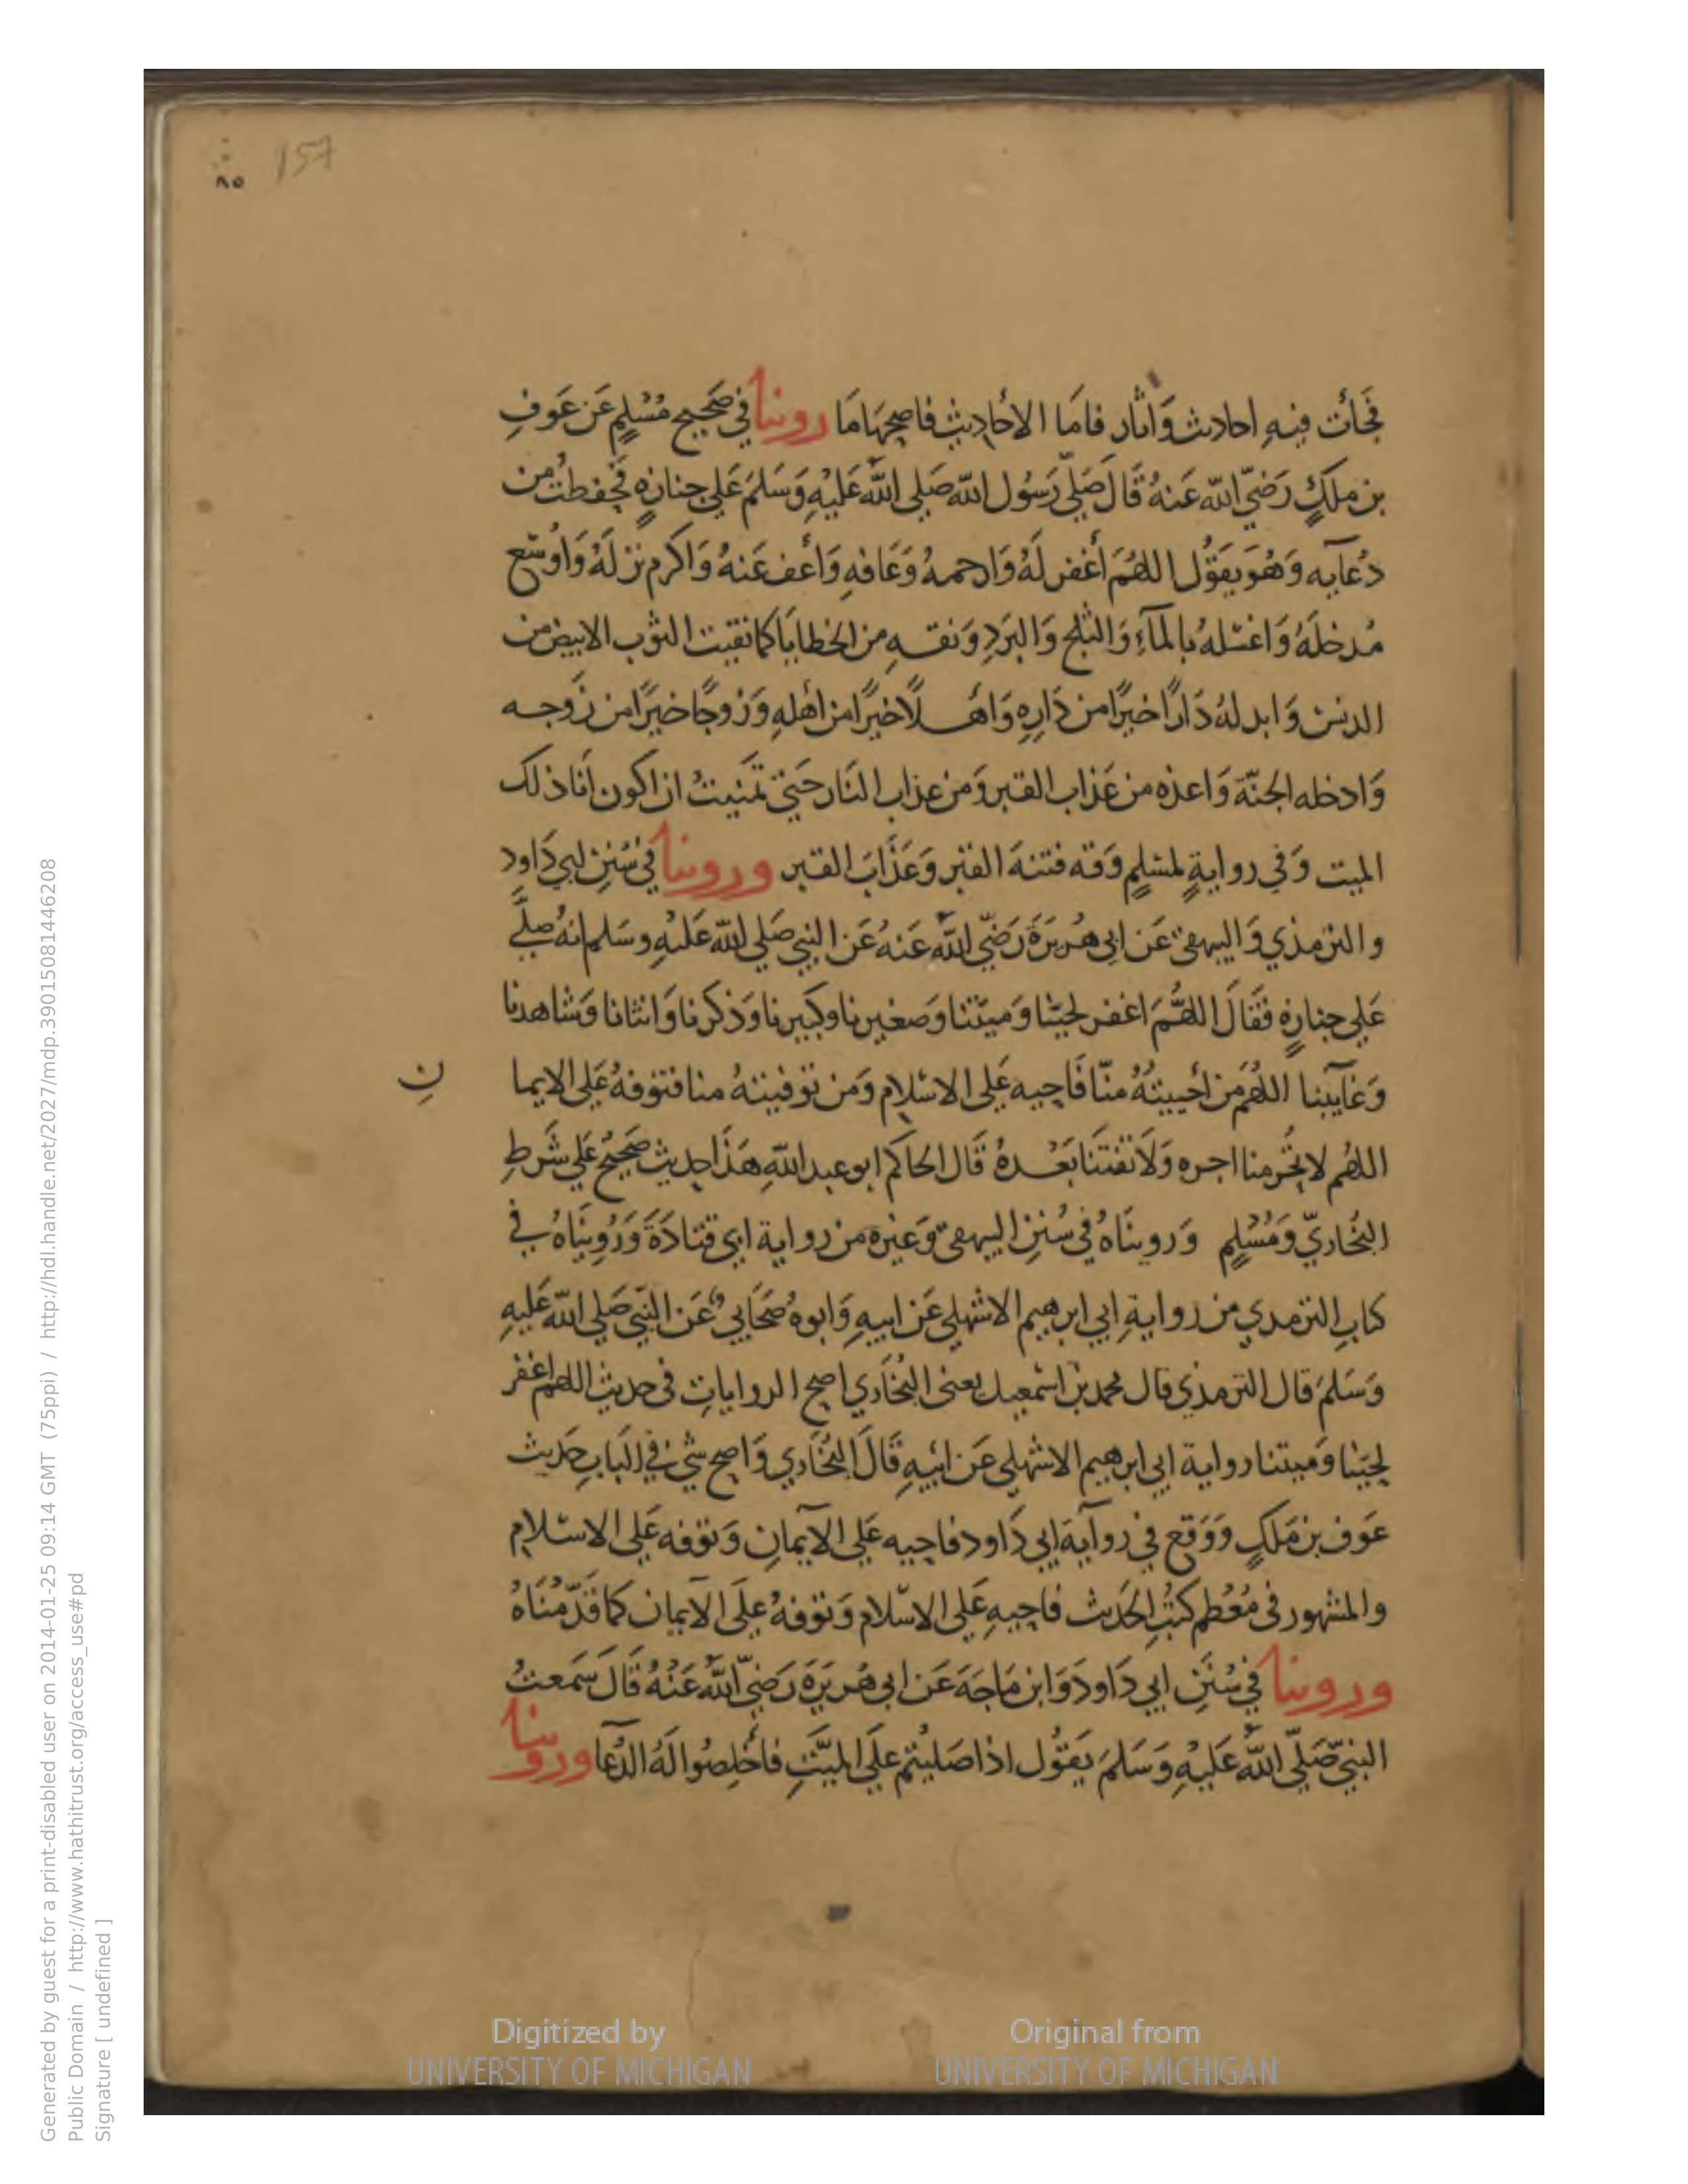 157
٨٥
فَجَأَت فيْهِ احاديث وَاثار فامَا الاحَاديثِ فاصحهَامَا روينا في صَحيحِ مُسْلمٍ عَن عَوفِ
بن ملكٍ رَضيّ اللّه عَنهُ قَالَ صَلّي رَسُول اللّه صَلي اللّه عَليْهِ وَسَلمَ عَلي جنازةٍ فحَفظتُ من
دُعآيه وَهُوَ يقوُل اللهُمَ أغفر لَهُ وَارحمهُ وَعَافهِ وَأعف عَنهُ وَاكرم نزلَهُ وَاوْسِّع
مُدخلَهُ وَاغسّلهُ بالمآءِ وَالثلج وَالبرَدِ وَنقهِ من الخطايَا كما نقيت الثوب الابيض من
الدنس وَابدلهُ دَارًا خيرًا من دَارِهِ وَأهلًا خيرًا من اهلهِ وَزوجًا خيرًا من زَوجه
وَادخله الجنّة وَاعذه من عَذاب القبر وَمن عذاب النَار حَتي تمَنيتُ ان اكون أنَا ذلك
الميت وَفي روايةٍ لمسْلمٍ وَقه فتنهَ القبْر وَعَذَابَ القبر وروينا في سُنن ابي دَاود
والترمذي وَالبيهقي عَن ابي هُريرَةَ رَضيّ اللّه عَنهُ عَن النبي صَلي اللّه عَليْهِ وسَلم انهُ صَلّي
عَلي جنازةٍ فقَالَ اللهُمَّ اغفر لحيّنا وَميّتنا وَصغيرنا وكبيرنا وَذكرنا وَانثانا وَشاهدنا
وَغايبنا اللهُمَ من أحييتهُ منّا فَاحيه عَلي الاسْلام وَمن توفيتهُ منا فتوفهُ عَلي الايما
ن
اللهُم لا تحْرمنا اجره وَلاَ تفتنَا بَعْدهُ قَال الحاكم ابو عبد اللّهِ هَذَا حديث صَحيحْ عَلي شَرطِ
البُخاريّ وَمُسْلمٍ وَرويناهُ في سُننِ البيهقي وَغيره من رواية ابي قتادَةَ وَرُوينَاهُ في
كتابِ الترمدي من روايةِ ابي ابرهيم الاشهلي عَن ابيهِ وَابوهُ صَحَابيٌ عَن النَبي صَلي اللّه عَليهِ
وَسَلمَ قال الترمذي قال محمد بن اسْمعيل يعني البُخَاري اصح الروايَاتِ في حديث اللهم اغفر
لحيّنا وَميتنا رواية ابي ابرهيم الاشهلي عَن ابيْهِ قَالَ البُخَاري وَاصح شئ في البَابِ حَديث
عَوف بن مَلكٍ وَوَقعَ في روآيةِ ابي دَاود فاحيه عَلي الآيمَانِ وَتوفه عَلي الاسْلام
والمشهور في مُعْظم كتُبِ الحَديث فاحيهِ عَلي الاسْلام وَتوفهُ عَلَي الآيمان كما قَدّمْنَاهُ
وروينا في سُنَنِ ابي دَاودَ وَابن مَاجَهَ عَن ابي هُريَرَةَ رَضيّ اللّه عَنْهُ قَالَ سَمعتُ
النبيّ صَلّي اللّهُ عَليْهِ وَسَلمَ يَقوُل اذا صَليتُم عَلَي الميّتِ فأَخلِصُوا لَهُ الدُعآ وروينا
Digitized by
UNIVERSITY OF MICHIGAN
Original from
UNIVERSITY OF MICHIGAN
Generated by guest for a print-disabled user on 2014-01-25 09:14 GMT (75ppi) / http://hdl.handle.net/2027/mdp.39015081446208
Public Domain / http://www.hathitrust.org/access_use#pd
Signature [ undefined ]